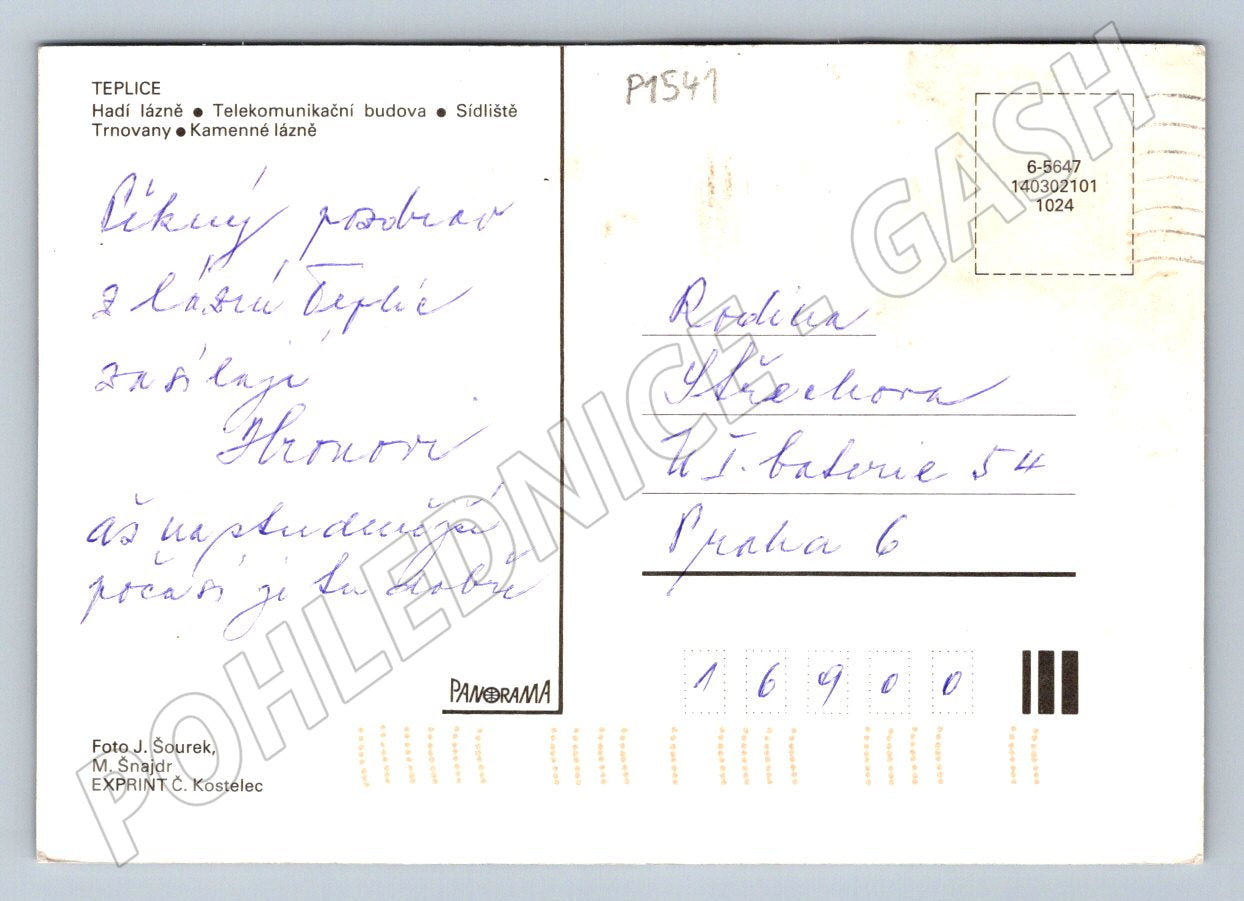 TEPLICE
Hadí lázně ● Telekomunikační budova ● Sídliště
Trnovany ● Kamenné lázně
P1541
6-5647
140302101
1024
Pěkný pozdrav
z lázní Teplic
zasílají
Hronovi
až na studenější
počasí je tu dobře
Rodina
Střechova
U I. baterie 54
Praha 6
16900
PANORAMA
Foto J. Šourek,
M. Šnajdr
EXPRINT Č. Kostelec
POHLEDNICE - GASH